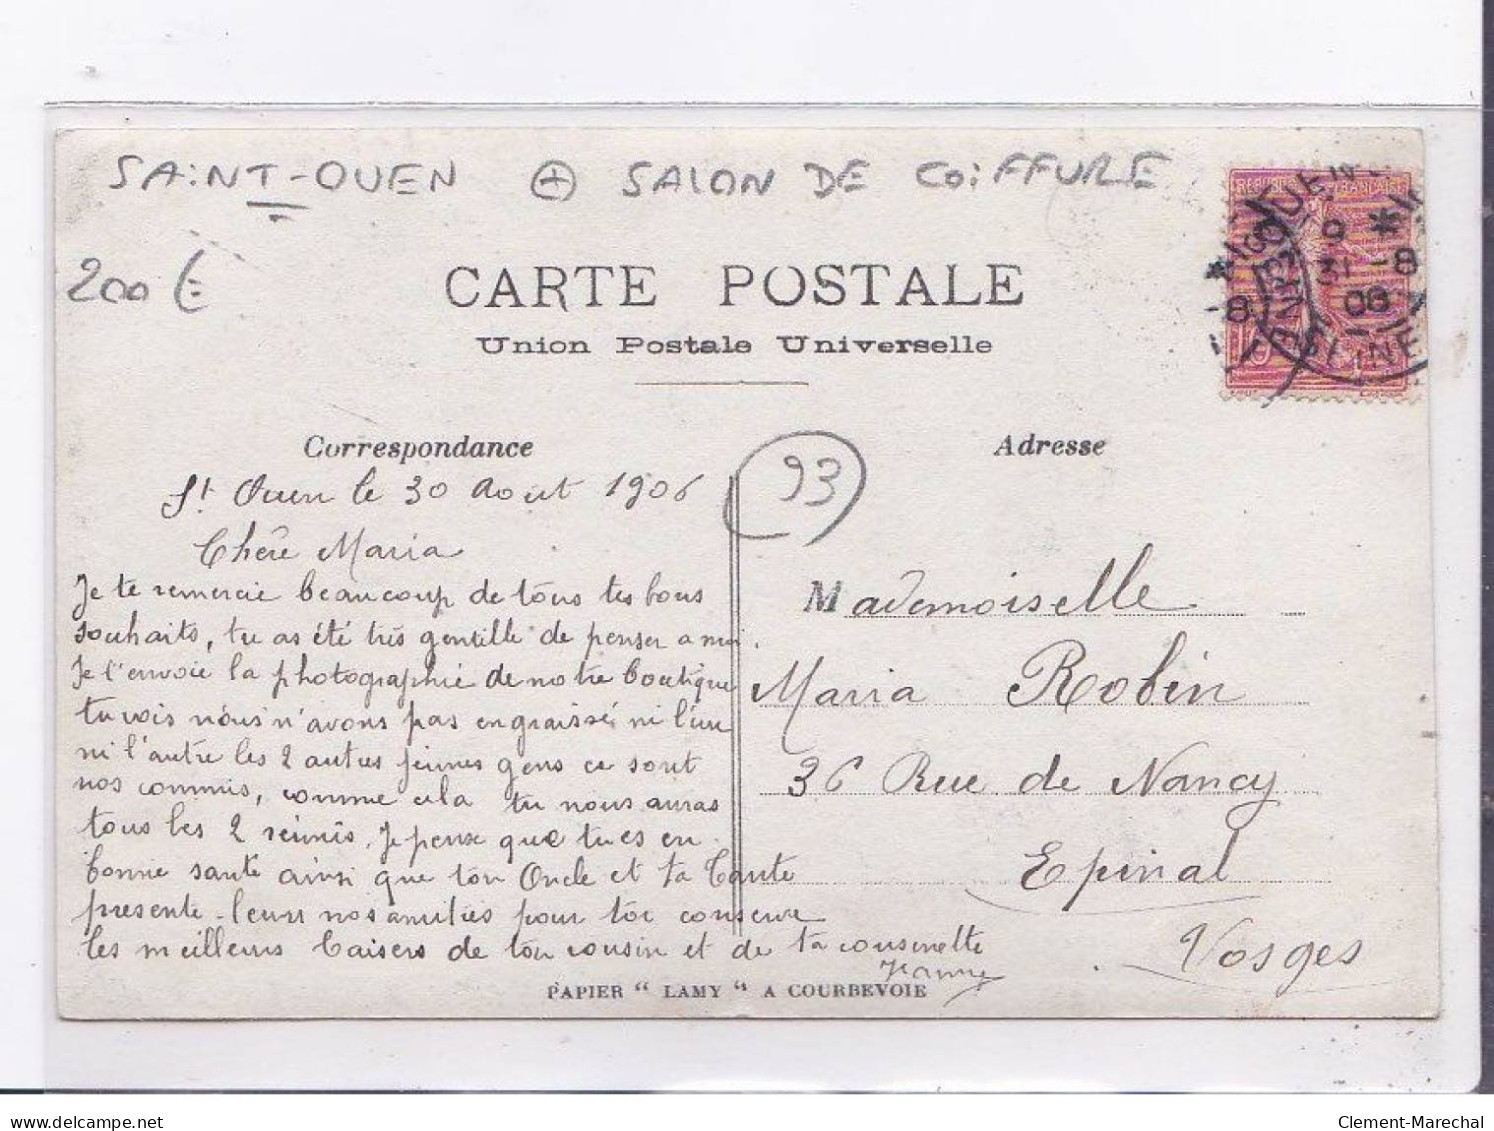 SAiNT-OUEN + SALON DE COiFFURE
200 €
CARTE POSTALE
Union Postale Universelle
REPUBLIQUE FRANÇAISE
31 -8
06
SEINE
10
Correspondance
93
Adresse
St Ouen le 30 Août 1906
Chère Maria
Je te remercie beaucoup de tous tes bons
souhaits, tu as été très gentille de penser a moi.
Je t'envoie la photographie de notre boutique
tu vois nous n'avons pas engraissé ni l'un
ni l'autre les 2 autres jeunes gens ce sont
nos commis, comme cela tu nous auras
tous les 2 réunis. Je pense que tu es en
bonne santé ainsi que ton Oncle et ta Tante
presente-leurs nos amitiés pour toi conserve
les meilleurs baisers de ton cousin et de ta cousinette
Jeanne
Mademoiselle
Maria Robin
36 Rue de Nancy
Epinal
Vosges
PAPIER " LAMY " A COURBEVOIE
www.delcampe.net
Clement-Marechal